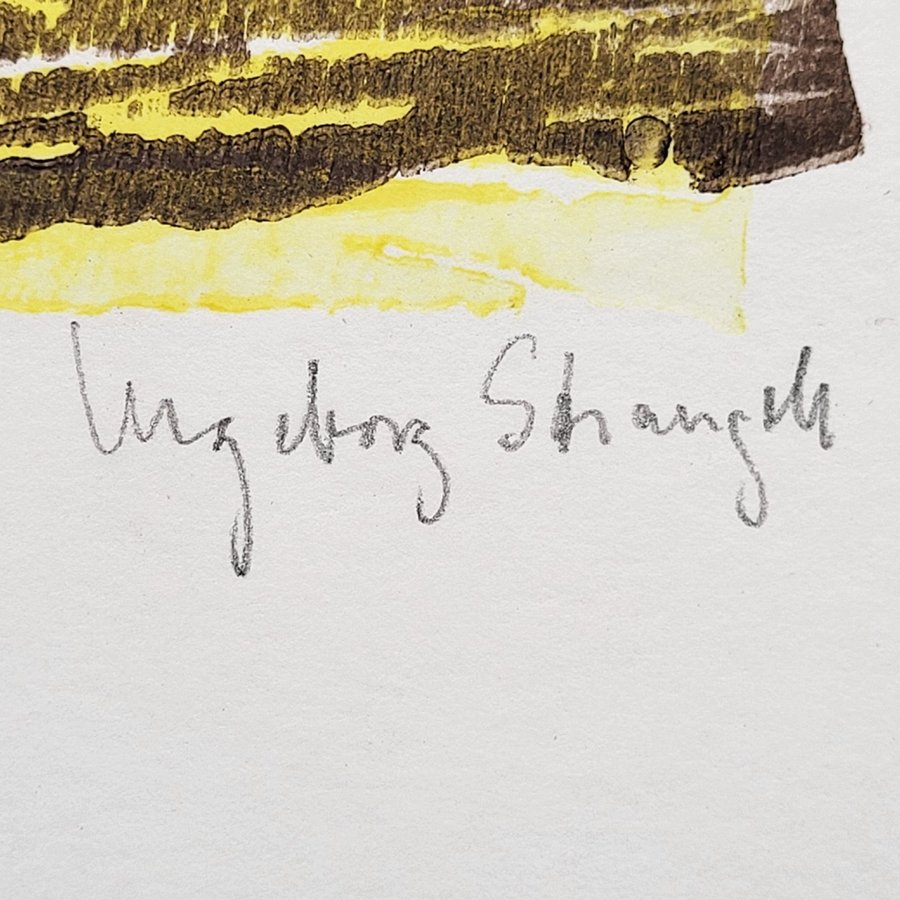 Ingeborg Strangeh